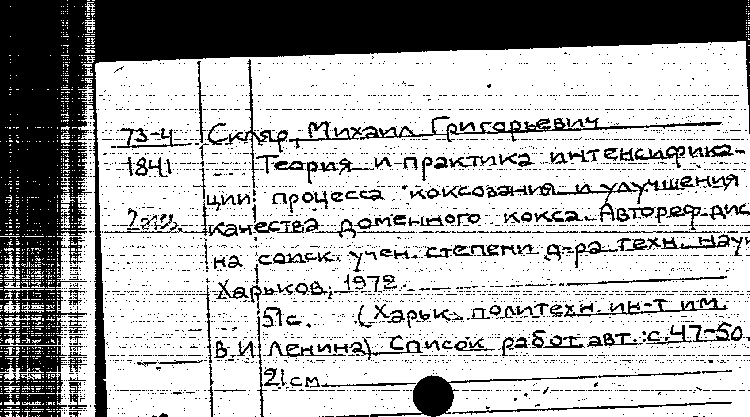 73-4 Скляр, Михаил Григорьевич
1841 Теория и практика интенсифика-
ции процесса коксования и улучшения
качества доменного кокса. Автореф. дис
на соиск. учен. степени д-ра техн. наук
Харьков, 1972.
51с. (Харьк. политехн. ин-т им.
В.И Ленина). Список работ авт.: с.47-50.
21 см.